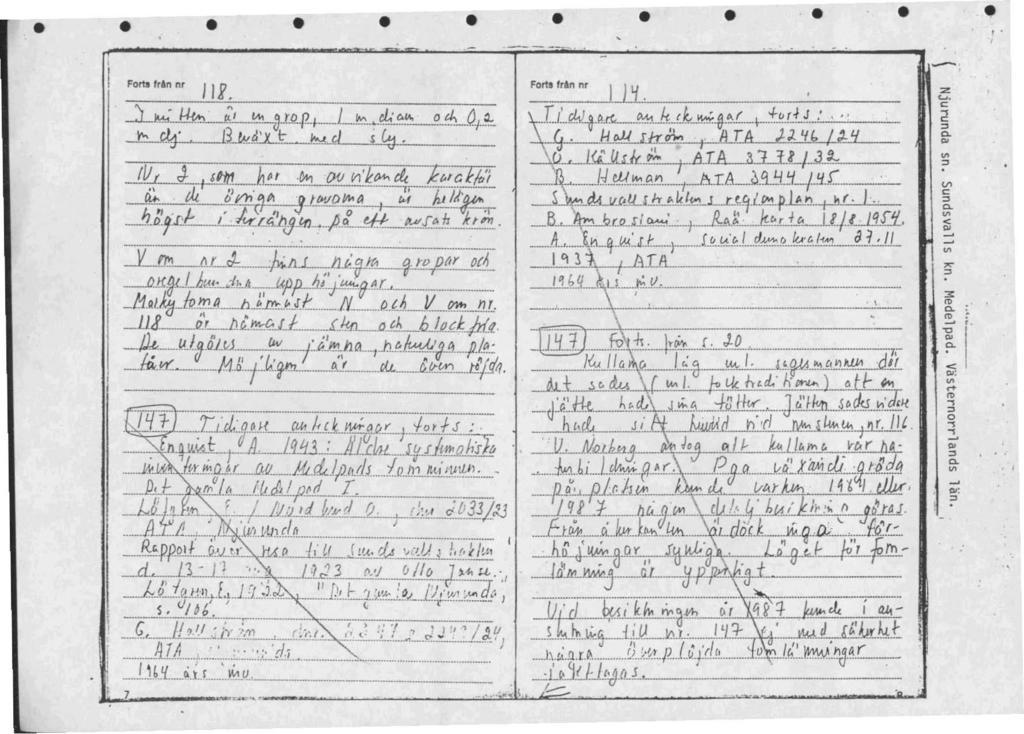 Forts från nr 118.
I mitten är en grop, 1 m diam och 0,2
m dj. Beväxt med sly.
Nr 2, som har en avvikande karaktär
än de övriga gravarna, är belägen
högst i terrängen, på ett avsats krön.
V om nr 2 finns några gropar och
oregelbundna upphöjningar.
Markytorna närmast N och V om nr.
118 är närmast sten och blockfria.
De utgöres av jämna, naturliga pla-
tåer. Möjligen är de även röjda.
147 Tidigare anteckningar, forts:
Enquist, A. 1943: Äldre systematiska
inventeringar av Medelpads fornminnen.
Det gamla Medelpad I.
Löfgren E. / Nordlund O., dnr 2033/23
ATA, Njurunda
Rapport över resa till Sundsvallstrakten
d. 13-17 1923 av Olle Janse.
Löfgren, E, 1922, "Det gamla Njurunda,
s. 106.
G. Hallström, dnr. 2247/24,
ATA
1964 års inv.
7
Forts från nr 114.
Tidigare anteckningar, forts:
G. Hallström, ATA 2246/24
O. Källström, ATA 3778/32
B. Hellman, ATA 3944/45
Sundsvallstraktens regionplan, nr. 1.
B. Ambrosiani, Raä. karta 18/8 1954.
A. Enquist, socialdemokraten 27.11
1937, ATA
1964 års inv.
147 Forts. från s. 20
Kullarna låg enl. sagesmannen där
det sades (enl. folktraditionen) att en
jätte hade sina fötter. Jätten sades vidare
hade sitt huvud vid nr. 116.
U. Norberg antog att kullarna var na-
turbildningar. Pga växande gröda
på platsen kunde varken 1964 eller
1987 någon detalj beskrivn göras.
Från åkerkanten är dock inga för-
höjningar synliga. Läget för forn-
lämning är ypperligt.
Vid besiktningen år 1987 kunde i an-
slutning till nr. 147 ej med säkerhet
några överplöjda fornlämningar
iakttagas.
8
Njurunda sn. Sundsvalls kn. Medelpad. Västernorrlands län.